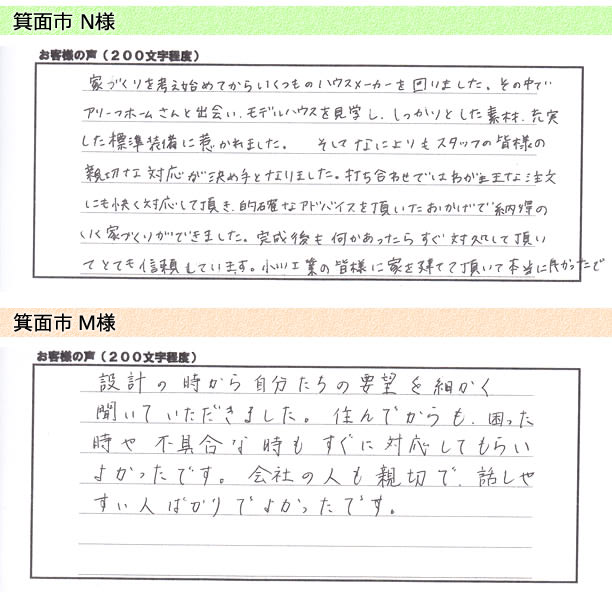 箕面市 N様
お客様の声（２００文字程度）
家づくりを考え始めてからいくつものハウスメーカーを回りました。その中で
アリーフホームさんと出会い、モデルハウスを見学し、しっかりとした素材、充実
した標準装備に惹かれました。 そしてなによりもスタッフの皆様の
親切な対応が決め手となりました。打ち合わせではわがままな注文
にも快く対応して頂き、的確なアドバイスを頂いたおかげで納得の
いく家づくりができました。完成後も何かあったらすぐ対処して頂い
てとても信頼しています。小川工業の皆様に家を建てて頂いて本当に良かったです
箕面市 M様
お客様の声（２００文字程度）
設計の時から自分たちの要望を細かく
聞いていただきました。住んでからも、困った
時や不具合な時もすぐに対応してもらい
よかったです。会社の人も親切で、話しや
すい人ばかりでよかったです。